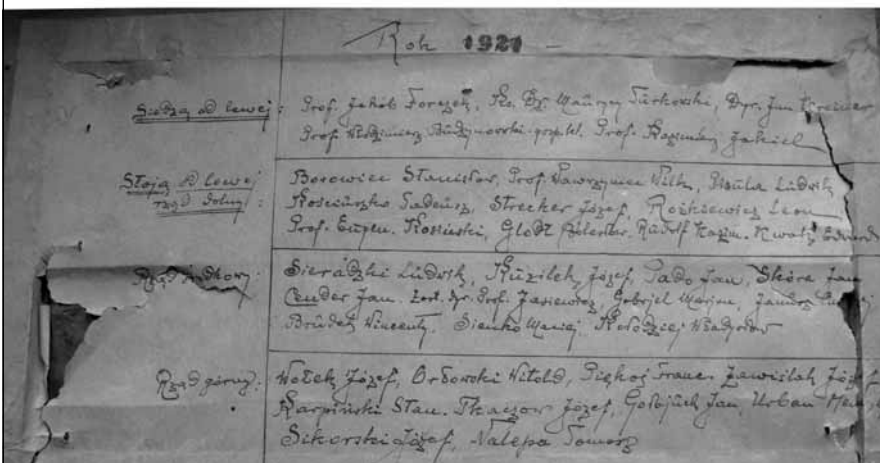 Rok 1921 –
Siedzą od lewej: Prof. Jakób Forczek, Ks. Dr. Maurycy Turkowski, Dyr. Jan Kreiner
Prof. Włodzimierz Budzynowski - Prof. Kazimierz Jakiel
Stoją od lewej Borowiec Stanisław, Prof. Wawrzyniec Wilk, Ludwik
rząd dolny: Kościuszko Tadeusz, Strecker Józef, Rożkiewicz Leon
Prof. Eugen. Kosiński, Glodt Bolesław, Rudolf Kazim. Edward
Rząd środkowy: Sieradzki Ludwik, Kuziłek Józef, Pado Jan, Skóra Jan
Cender Jan. Prof. Jasiewicz, Gabrjel Marjan,
Brudek Wincenty, Sienko Maciej, Kołodziej Władysław
Rząd górny: Wołek Józef, Orłowski Witold, Piękoś Franc. Zawiślak Józef
Karpiński Stan. Tkaczow Józef, Gołojuch Jan, Urban
Sikorski Józef, Nalepa Tomasz